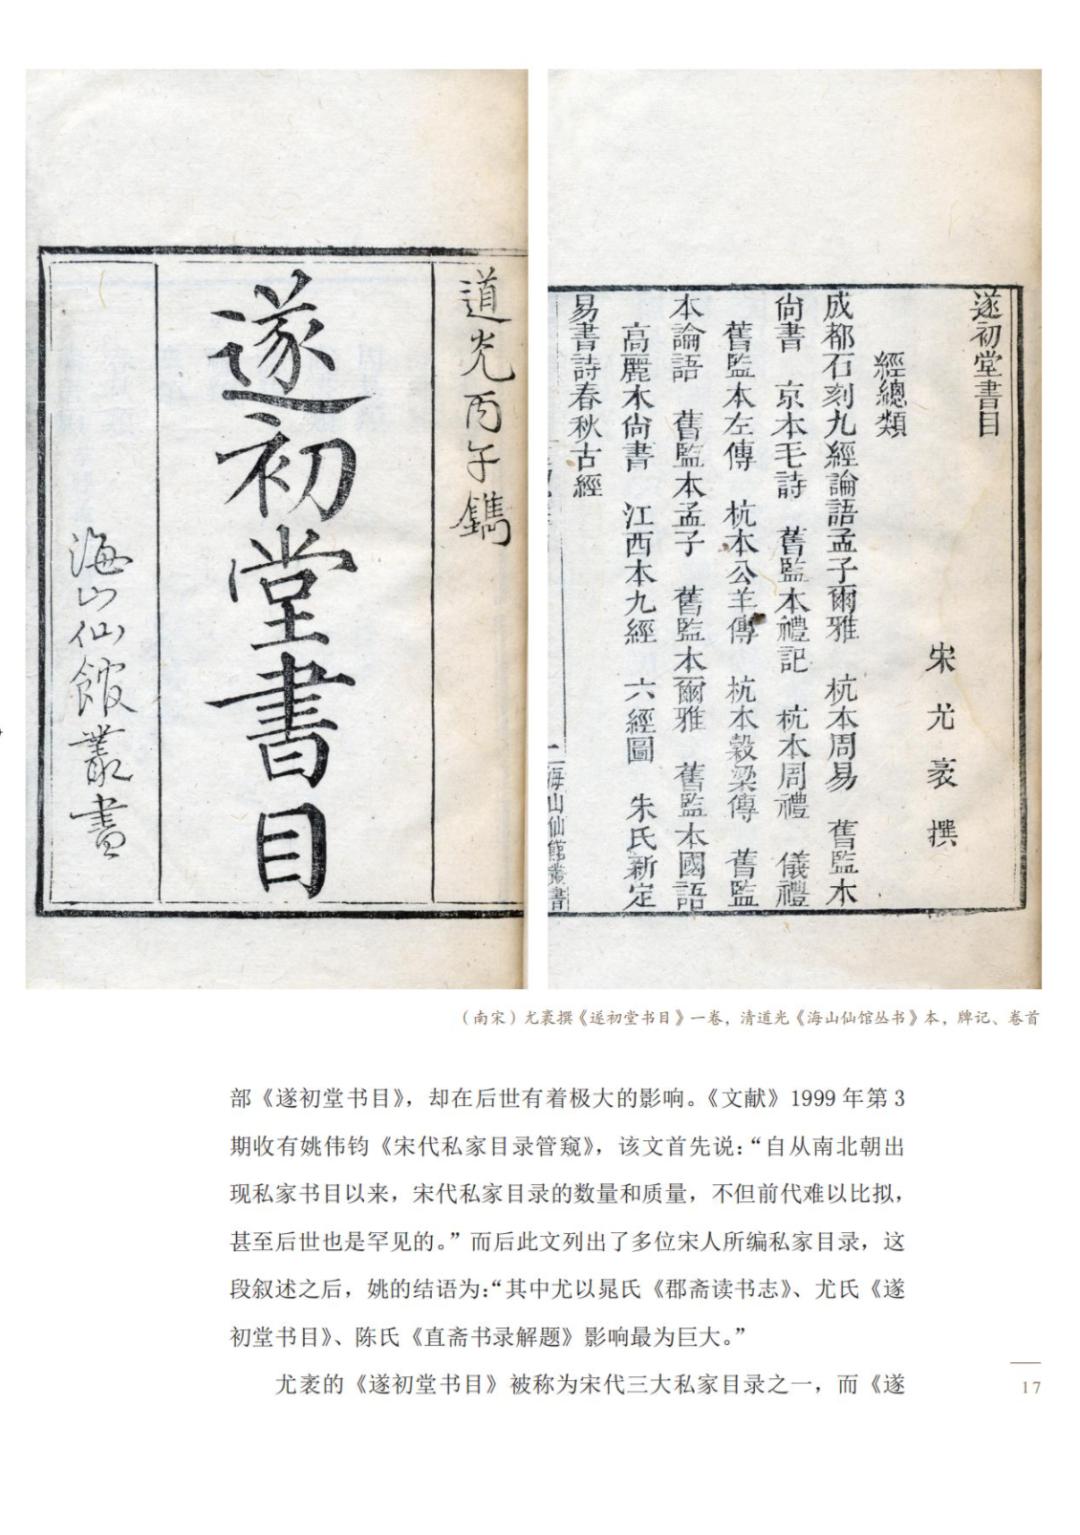 道光丙午鐫
遂初堂書目
海山仙館叢書
遂初堂書目
宋尤袤撰
經總類
成都石刻九經論語孟子爾雅 杭本周易 舊監本
尙書 京本毛詩 舊監本禮記 杭本周禮 儀禮
舊監本左傳 杭本公羊傳 杭本穀梁傳 舊監
本論語 舊監本孟子 舊監本爾雅 舊監本國語
高麗本尙書 江西本九經 六經圖 朱氏新定
易書詩春秋古經
一 海山仙館叢書
（南宋）尤袤撰《遂初堂书目》一卷，清道光《海山仙馆丛书》本，牌记、卷首
部《遂初堂书目》，却在后世有着极大的影响。《文献》1999 年第 3
期收有姚伟钧《宋代私家目录管窥》，该文首先说：“自从南北朝出
现私家书目以来，宋代私家目录的数量和质量，不但前代难以比拟，
甚至后世也是罕见的。”而后此文列出了多位宋人所编私家目录，这
段叙述之后，姚的结语为：“其中尤以晁氏《郡斋读书志》、尤氏《遂
初堂书目》、陈氏《直斋书录解题》影响最为巨大。”
尤袤的《遂初堂书目》被称为宋代三大私家目录之一，而《遂
17